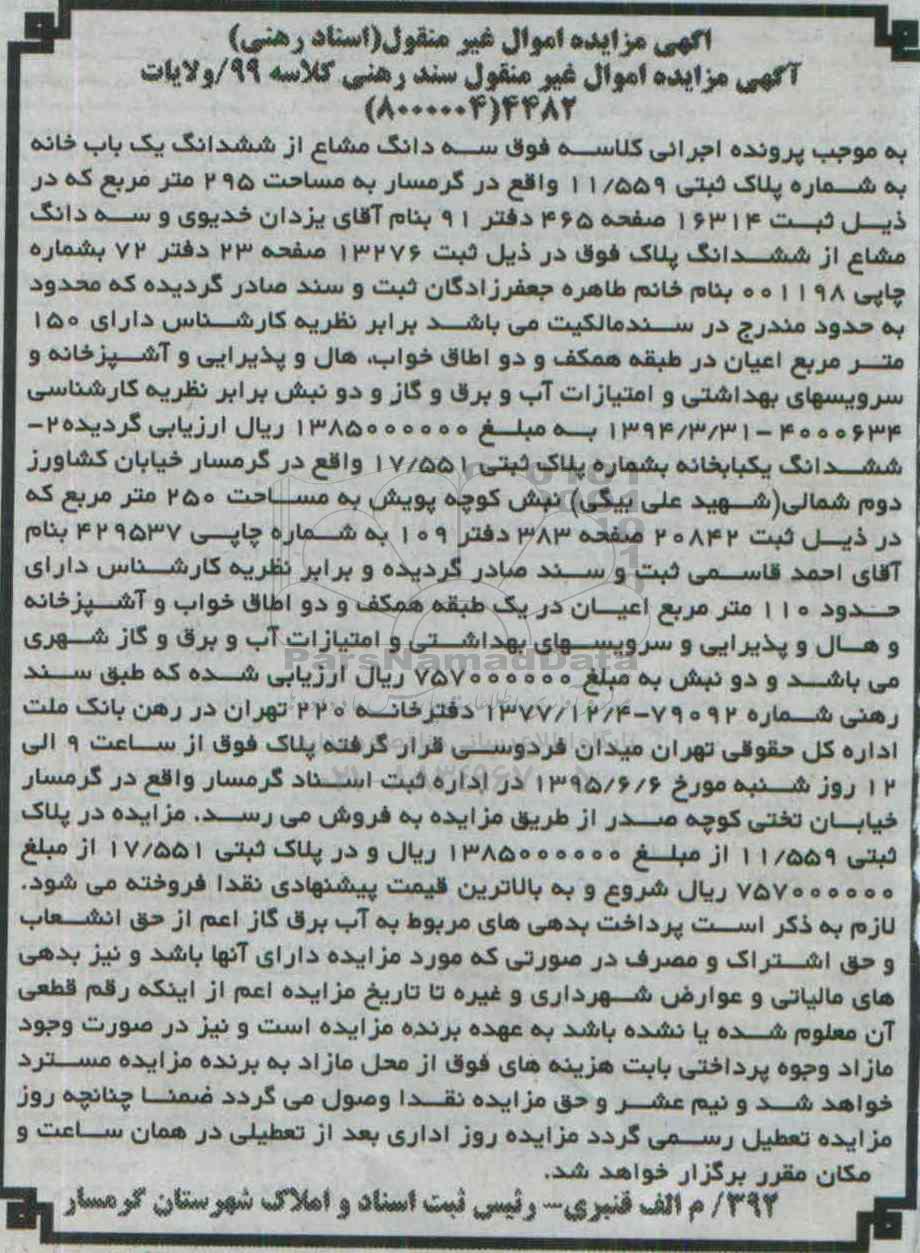 آگهی مزایده اموال غیر منقول(اسناد رهنی)
آگهی مزایده اموال غیر منقول سند رهنی کلاسه ۹۹/ولایات
۴۴۸۲(۸۰۰۰۰۰۴)
به موجب پرونده اجرائی کلاسه فوق سه دانگ مشاع از ششدانگ یک باب خانه
به شماره پلاک ثبتی ۱۱/۵۵۹ واقع در گرمسار به مساحت ۲۹۵ متر مربع که در
ذیل ثبت ۱۶۳۱۴ صفحه ۴۶۵ دفتر ۹۱ بنام آقای یزدان خدیوی و سه دانگ
مشاع از ششدانگ پلاک فوق در ذیل ثبت ۱۳۲۷۶ صفحه ۲۳ دفتر ۷۲ بشماره
چاپی ۰۰۱۱۹۸ بنام خانم طاهره جعفرزادگان ثبت و سند صادر گردیده که محدود
به حدود مندرج در سندمالکیت می باشد برابر نظریه کارشناس دارای ۱۵۰
متر مربع اعیان در طبقه همکف و دو اطاق خواب، هال و پذیرایی و آشپزخانه و
سرویسهای بهداشتی و امتیازات آب و برق و گاز و دو نبش برابر نظریه کارشناسی
۴۰۰۰۶۳۴-۱۳۹۴/۳/۳۱ به مبلغ ۱۳۸۵۰۰۰۰۰۰ ریال ارزیابی گردیده۲-
ششدانگ یکبابخانه بشماره پلاک ثبتی ۱۷/۵۵۱ واقع در گرمسار خیابان کشاورز
دوم شمالی(شهید علی بیگی) نبش کوچه پویش به مساحت ۲۵۰ متر مربع که
در ذیل ثبت ۲۰۸۴۲ صفحه ۳۸۳ دفتر ۱۰۹ به شماره چاپی ۴۲۹۵۳۷ بنام
آقای احمد قاسمی ثبت و سند صادر گردیده و برابر نظریه کارشناس دارای
حدود ۱۱۰ متر مربع اعیان در یک طبقه همکف و دو اطاق خواب و آشپزخانه
و هال و پذیرایی و سرویسهای بهداشتی و امتیازات آب و برق و گاز شهری
ParsNamadData
می باشد و دو نبش به مبلغ ۷۵۷۰۰۰۰۰۰ ریال ارزیابی شده که طبق سند
رهنی شماره ۷۹۰۹۲-۱۳۷۷/۱۲/۴ دفترخانه ۲۲۰ تهران در رهن بانک ملت
اداره کل حقوقی تهران میدان فردوسی قرار گرفته پلاک فوق از ساعت ۹ الی
۱۲ روز شنبه مورخ ۱۳۹۵/۶/۶ در اداره ثبت اسناد گرمسار واقع در گرمسار
خیابان تختی کوچه صدر از طریق مزایده به فروش می رسد. مزایده در پلاک
ثبتی ۱۱/۵۵۹ از مبلغ ۱۳۸۵۰۰۰۰۰۰ ریال و در پلاک ثبتی ۱۷/۵۵۱ از مبلغ
۷۵۷۰۰۰۰۰۰ ریال شروع و به بالاترین قیمت پیشنهادی نقدا فروخته می شود.
لازم به ذکر است پرداخت بدهی های مربوط به آب برق گاز اعم از حق انشعاب
و حق اشتراک و مصرف در صورتی که مورد مزایده دارای آنها باشد و نیز بدهی
های مالیاتی و عوارض شهرداری و غیره تا تاریخ مزایده اعم از اینکه رقم قطعی
آن معلوم شده یا نشده باشد به عهده برنده مزایده است و نیز در صورت وجود
مازاد وجوه پرداختی بابت هزینه های فوق از محل مازاد به برنده مزایده مسترد
خواهد شد و نیم عشر و حق مزایده نقدا وصول می گردد ضمنا چنانچه روز
مزایده تعطیل رسمی گردد مزایده روز اداری بعد از تعطیلی در همان ساعت و
مکان مقرر برگزار خواهد شد.
۳۹۲/ م الف قنبری- رئیس ثبت اسناد و املاک شهرستان گرمسار